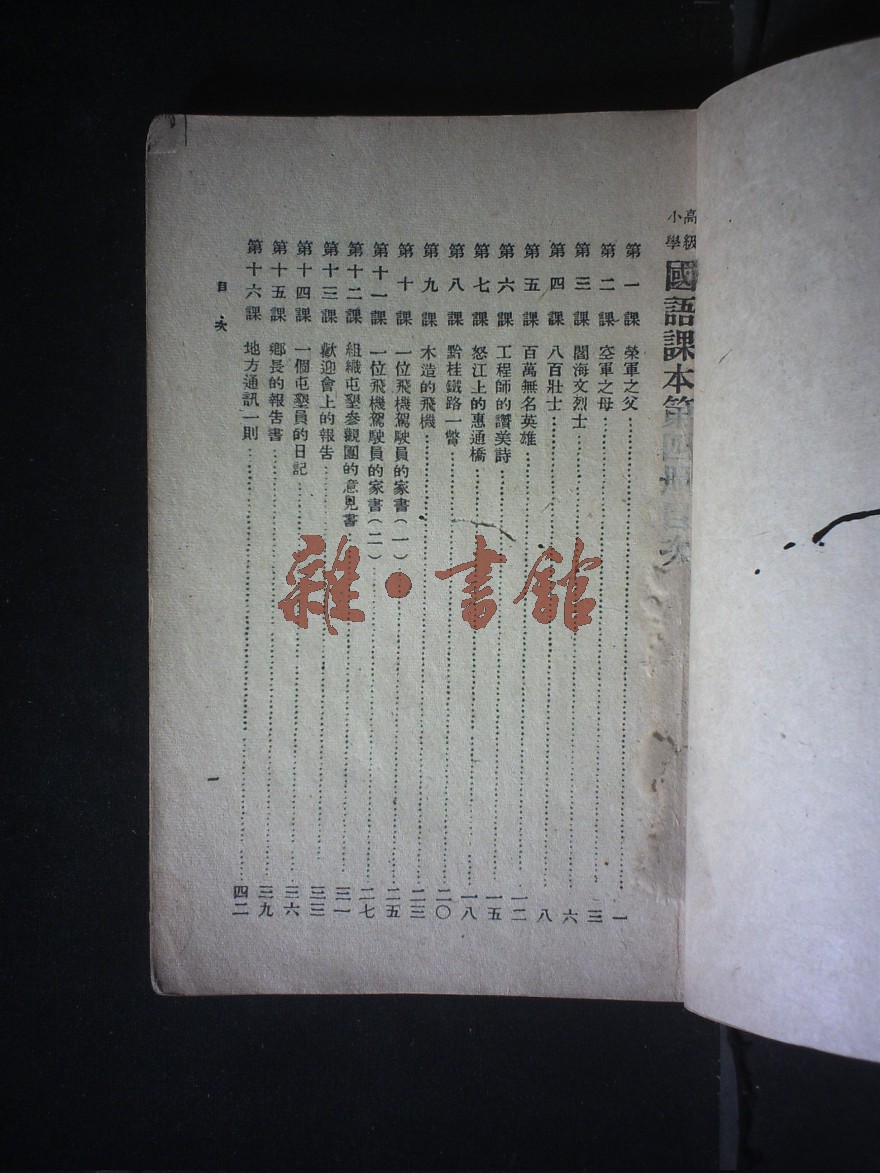 高級小學 國語課本第四冊目次
第一課 榮軍之父 一
第二課 空軍之母 三
第三課 閻海文烈士 六
第四課 八百壯士 八
第五課 百萬無名英雄 一二
第六課 工程師的讚美詩 一五
第七課 怒江上的惠通橋 一八
第八課 黔桂鐵路一瞥 二〇
第九課 木造的飛機 二三
第十課 一位飛機駕駛員的家書(一) 二五
第十一課 一位飛機駕駛員的家書(二) 二七
第十二課 組織屯墾參觀團的意見書 三一
第十三課 歡迎會上的報告 三三
第十四課 一個屯墾員的日記 三六
第十五課 鄉長的報告書 三九
第十六課 地方通訊一則 四二
目次
一
雜·書館